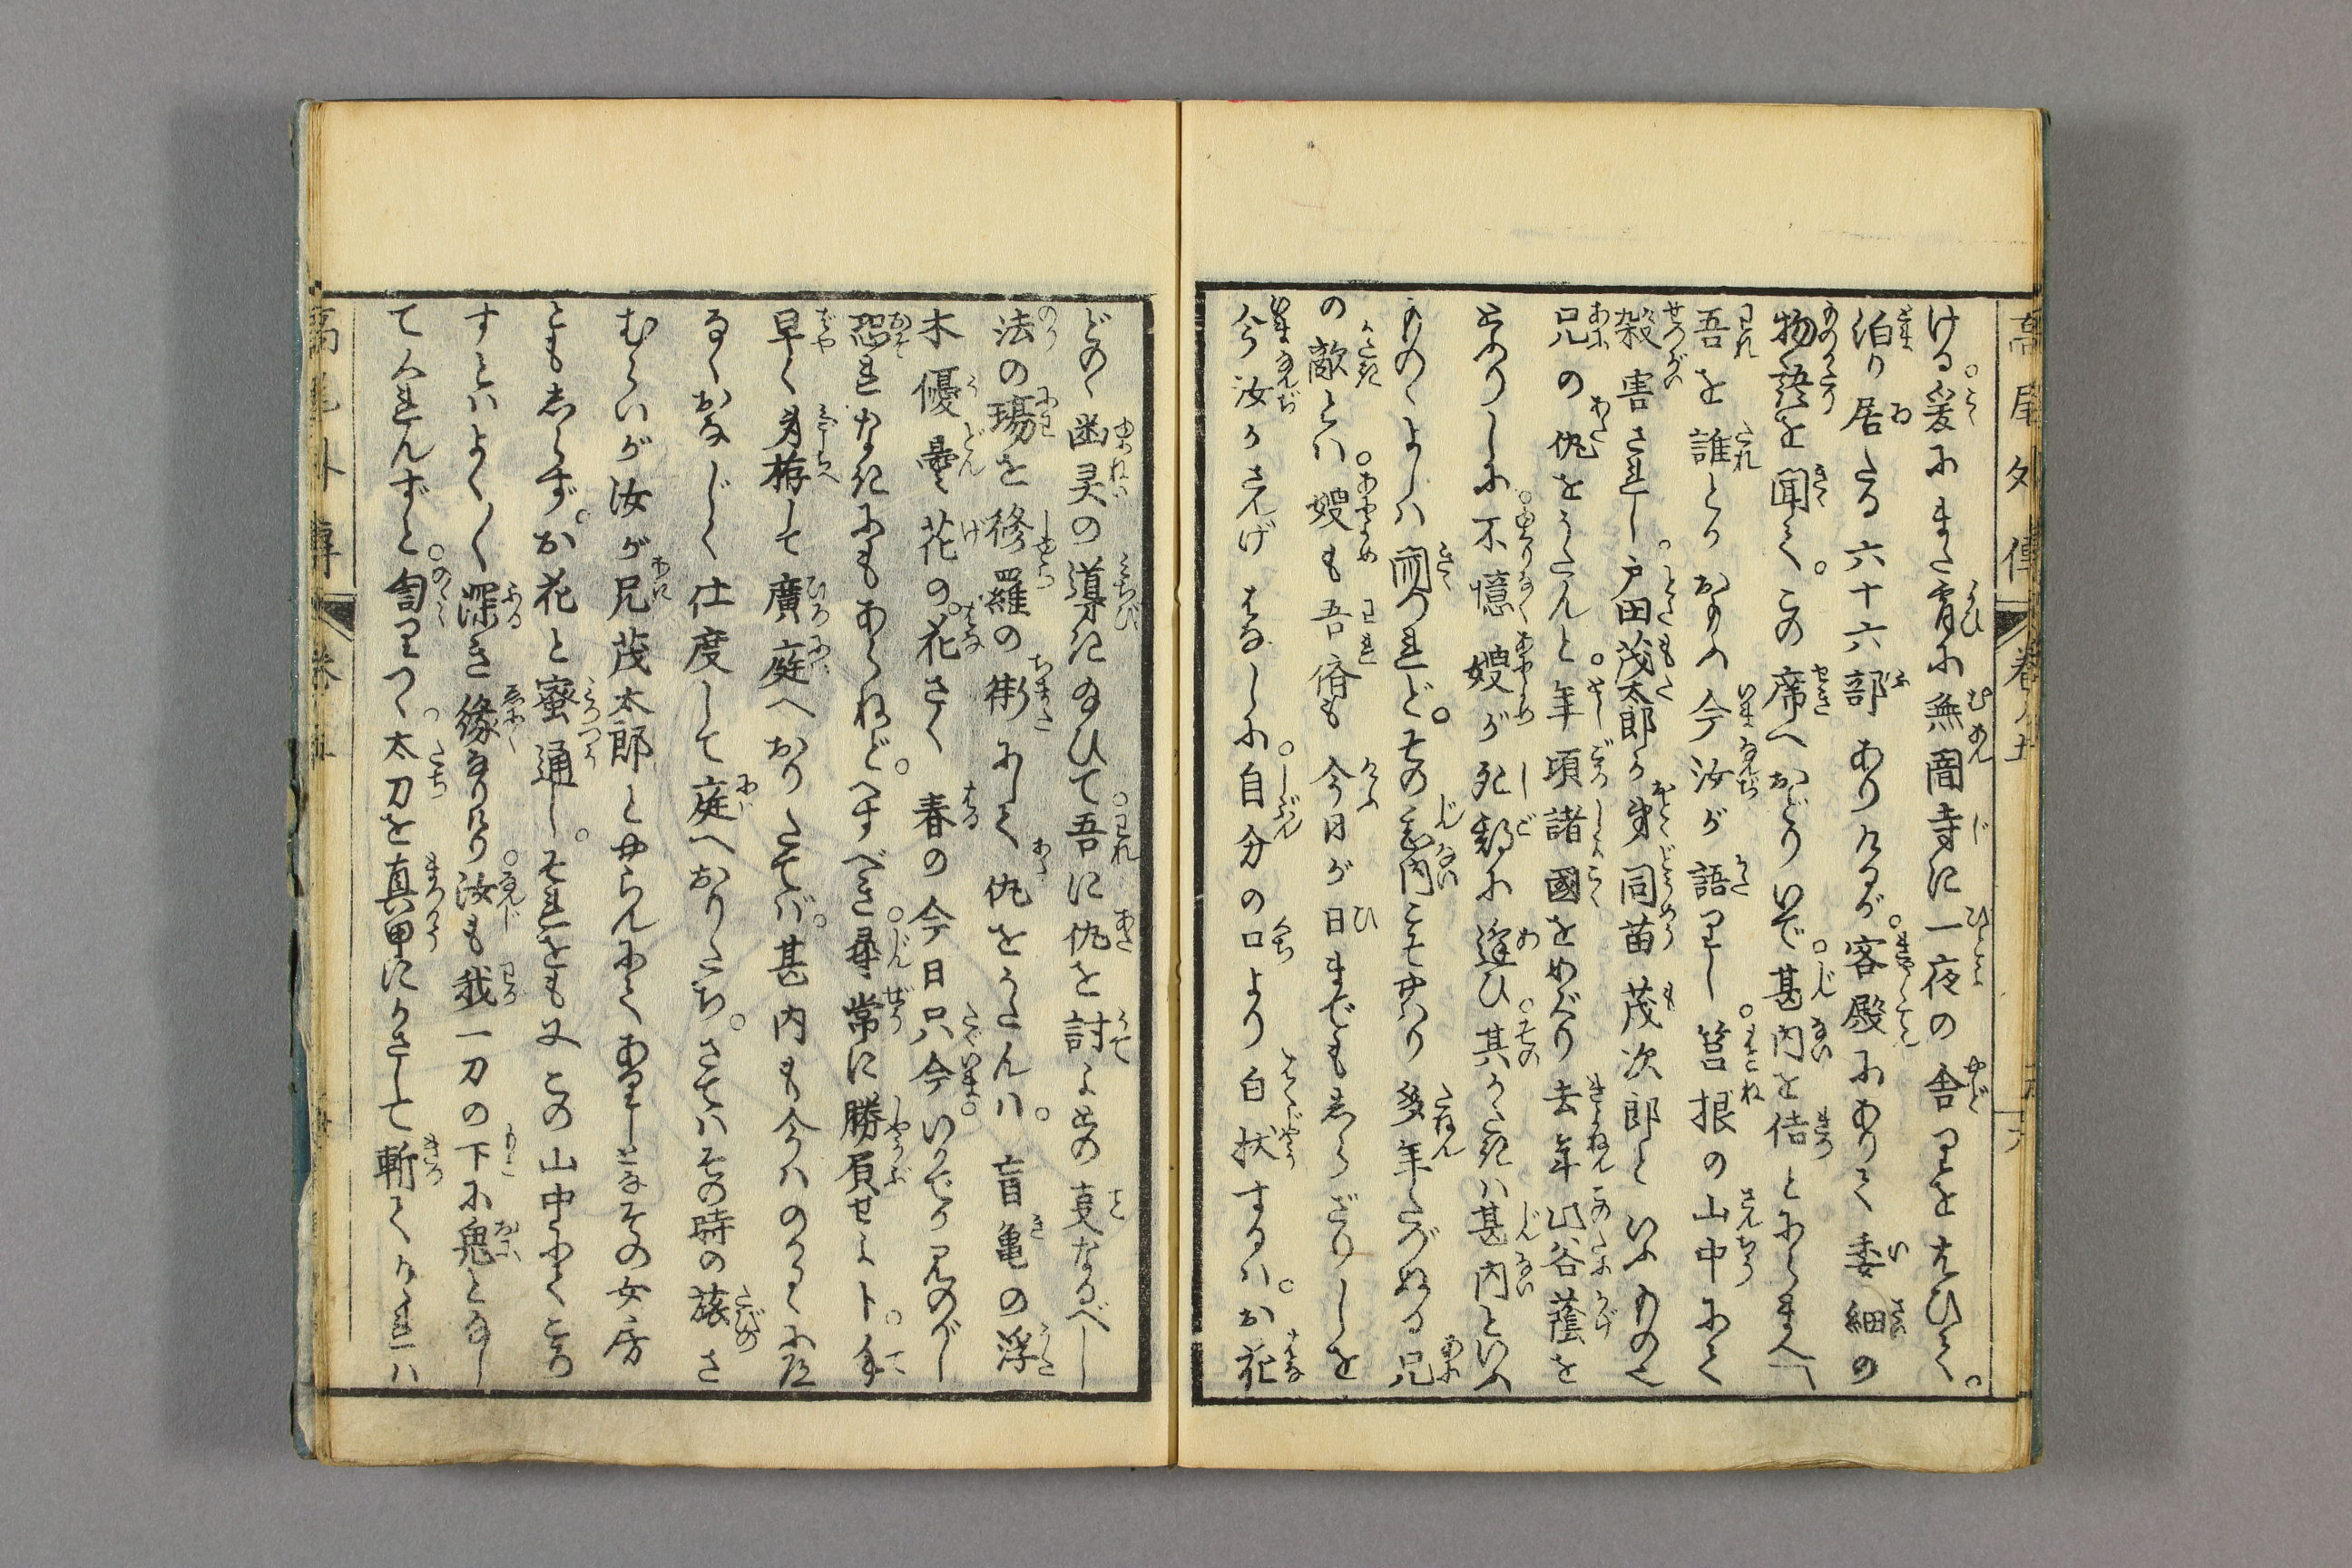 高尾外傳 巻ノ五
ける。爰にまだ宵に無間寺に一夜の舎りをたのひて。
泊り居たる六十六部ありけるが。客殿にありて委細の
物語を聞て。この席へおどりいで。甚内を佶とにらまへ「
吾を誰とかおもふ今汝が語りし。筥根の山中にて
殺害されし。戸田茂太郎が弟同苗茂次郎といふもの也
兄の仇をうたんと。年頃諸國をめぐり去年此谷蔭を
とふりしに。不憶嫂が死靈に逢ひ。其かたきは甚内といふ
ものゝよしは聞つれど。その甚内こそ即り多年たづぬる兄
の敵とは。嫂も吾儕も今日が日までもしらざりしを
今汝がさんげばなしに。自分の口より白状するは。お花
どのゝ幽灵の導きにあひて。吾に仇を討よとの叓なるべし
法の場を修羅の街にして仇をうたんは。盲亀の浮
木優曇花の。花さく春の今日只今。いかでか見のがし
恐れなきにもあらねど。へすべき。尋常に勝負せよト。手
早く身拵して廣庭へおりたてば。甚内も今はのがるゝに处
なくおなじく仕度して庭へおりたち。さてはその時の旅さ
むらいが汝が兄茂太郎とやらんにてありしよなその女房
ともしらず。お花と蜜通し。それをも又この山中にてころ
すとはよく〱深き縁なりけり。汝も我一刀の下に鬼となし
て入れんずと。訇りつゝ。太刀を真甲にかざして斬てかゝれは
高尾外傳 巻五